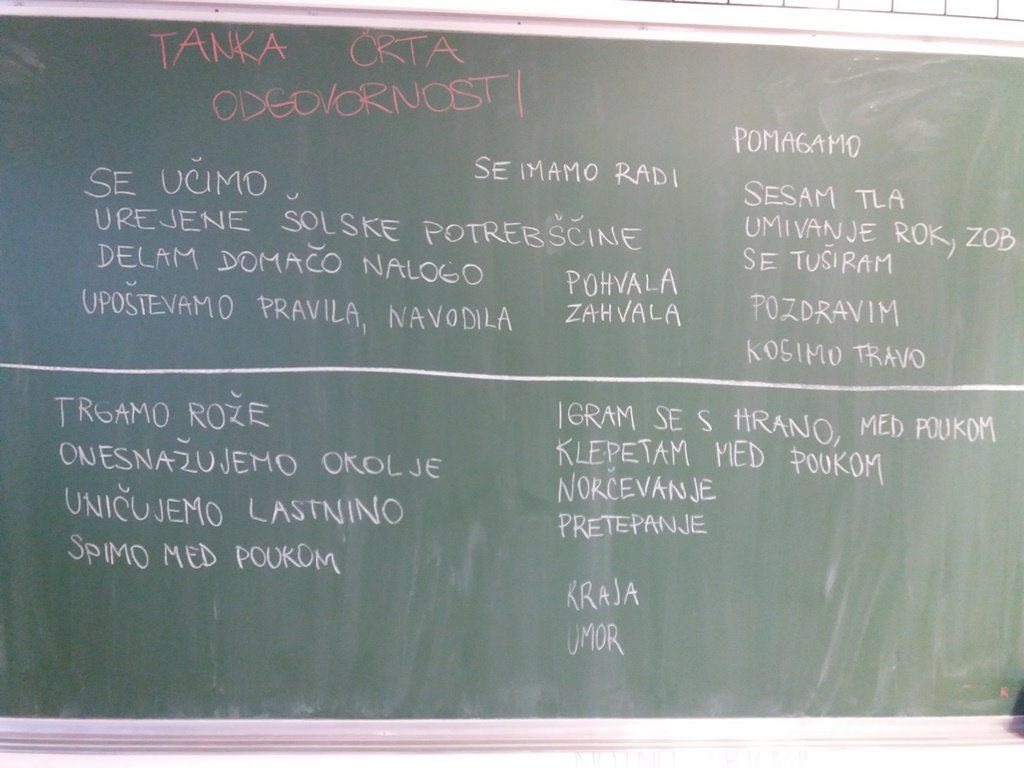 TANKA ČRTA
ODGOVORNOSTI
SE UČIMO
UREJENE ŠOLSKE POTREBŠČINE
DELAM DOMAČO NALOGO
UPOŠTEVAMO PRAVILA, NAVODILA
SE IMAMO RADI
POHVALA
ZAHVALA
POMAGAMO
SESAM TLA
UMIVANJE ROK, ZOB
SE TUŠIRAM
POZDRAVIM
KOSIMO TRAVO
TRGAMO ROŽE
ONESNAŽUJEMO OKOLJE
UNIČUJEMO LASTNINO
SPIMO MED POUKOM
IGRAM SE S HRANO, MED POUKOM
KLEPETAM MED POUKOM
NORČEVANJE
PRETEPANJE
KRAJA
UMOR